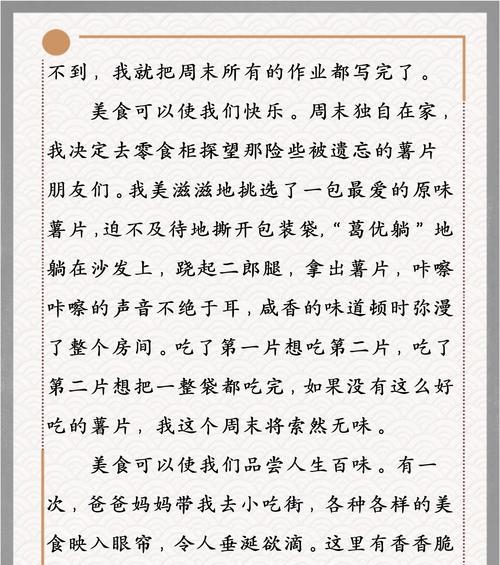 不到，我就把周末所有的作业都写完了。
美食可以使我们快乐。周末独自在家，
我决定去零食柜探望那险些被遗忘的薯片
朋友们。我美滋滋地挑选了一包最爱的原味
薯片，迫不及待地撕开包装袋，“葛优躺”地
躺在沙发上，跷起二郎腿，拿出薯片，咔嚓
咔嚓的声音不绝于耳，咸香的味道顿时弥漫
了整个房间。吃了第一片想吃第二片，吃了
第二片想把一整袋都吃完，如果没有这么好
吃的薯片，我这个周末将索然无味。
美食可以使我们品尝人生百味。有一
次，爸爸妈妈带我去小吃街，各种各样的美
食映入眼帘，令人垂涎欲滴。这里有香香脆